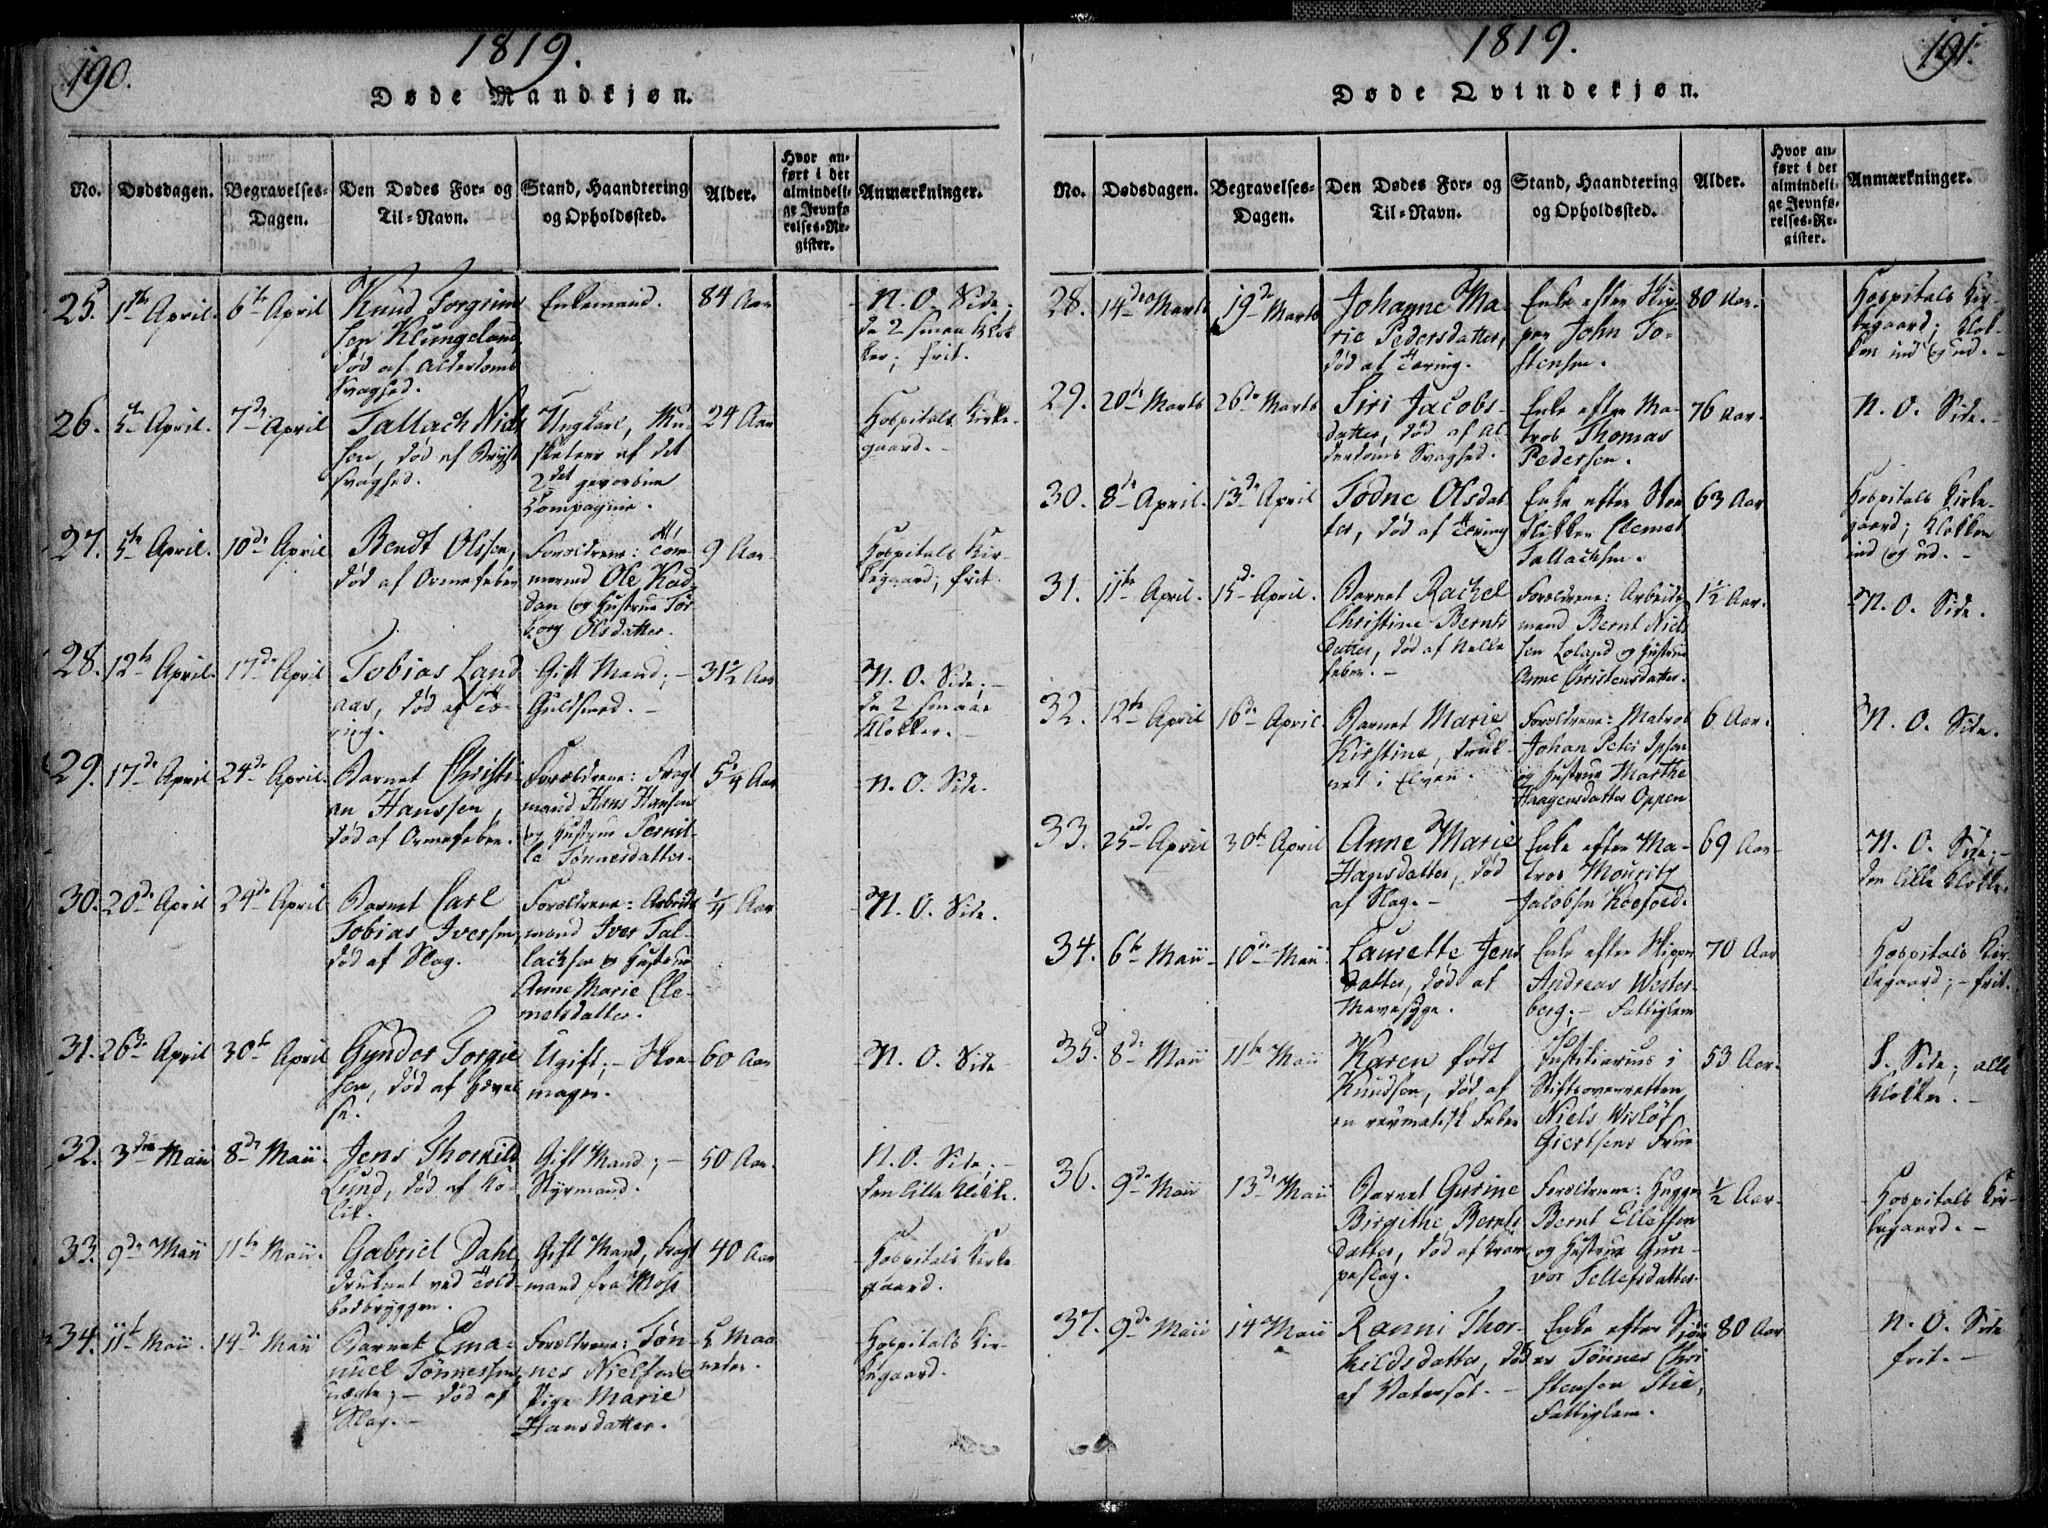 190.
1819.
Døde Mandkjøn.
No. Dødsdagen. Begravelses-Dagen. Den Dødes For- og Til-Navn. Stand, Haandtering og Opholdssted. Alder. Hvor anført i det almindelige Jevnførelses-Register. Anmærkninger.
25. 1te April. 6te April
Knud Torgrims
sen Klungeland
død af Alderdoms
Svaghed.
Enkemand.
84 Aar
N. O. Side;
de 2 smaa Klok
ker; frit.
26. 5te April. 7de April
Tallach Niel
sen, død af Bryst
svaghed.
Ungkarl, Mu-
sketeer af det
2det gevorbne
Compagnie.
24 Aar
Hospitals Kirke-
gaard.
27. 5te April. 10de April
Bendt Olssen,
død af Ormefeber
Forældrene: Töm-
mermd Ole Kad-
dan og Hustrue Tor-
borg Olsdatter.
9 Aar
Hospitals Kir-
kegaard; frit.
28. 12te April. 17de April
Tobias Land
aas, død af Tæ-
ring.
Gift Mand; -
Guldsmed. -
31½ Aar
N. O. Side; -
de 2 smaae
Klokker. -
29. 17de April 24de April.
Barnet Christi-
an Hanssen,
død af Ormefeber.
Forældrene: Fragt
mand Hans Hansen
og Hustrue Pernil-
le Tønnesdatter.
5¼ Aar
N. O. Side.
30. 20de April 24de April
Barnet Carl
Tobias Iversen,
død af Slag.
Forældrene: Arbeids
mand Iver Tal-
lachsen og Hustrue
Anne Marie Cle-
metsdatter.
¼ Aar
N. O. Side.
31. 26de April 30te April
Gunder Torgie
sen, død af Hævel
se.
Ugift; - Skoe-
mager.
60 Aar
N. O. Side
32. 3die Maii 8de Maii.
Jens Thorkild
Lund, død af Ko-
lik.
Gift Mand; -
Styrmand.
50 Aar.
N. O. Side; -
den lille Klokke.
33. 9de Maii 11te Maii.
Gabriel Dahl,
druknet ved Told-
bodbryggen.
Gift Mand, Fragt
mand fra Moss
40 Aar
Hospitals Kirke
gaard.
34. 11te Maii. 14de Maii
Barnet Ema-
nuel Tönnessen,
uægte; - død af
Slag. -
Forældrene: Tön-
nes Nielsen &
Pige Marie
Hansdatter.
5 Maa
neder.
Hospitals Kir-
kegaard.
191.
1819.
Døde Qvindekjøn.
No. Dødsdagen. Begravelses-Dagen. Den Dødes For- og Til-Navn. Stand, Haandtering og Opholdssted. Alder. Hvor anført i det almindelige Jevnførelses-Register. Anmærkninger.
28. 14de Marts 19de Marts
Johanne Ma-
rie Pedersdatter,
død af Tæring.
Enke efter Skip-
per John To-
stensen.
80 Aar.
Hospitals Kir-
kegaard; Klok-
ken ind og ud. -
29. 20de Marts 26de Marts
Siri Jacobs-
datter, død af Al-
derdoms Svaghed.
Enke efter Ma-
tros Thomas
Pedersen.
76 Aar.
N. O. Side. -
30. 8de April. 13de April
Todne Olsdat
ter, død af Tæring
Enke efter Skoe
flikker Clemet
Tallachsen.
63 Aar
Hospitals Kirke-
gaard; Klokken
ind og ud. -
31. 11te April. 15de April.
Barnet Rachel
Christine Bernts
datter, død af Nelle
feber. -
Forældrene: Arbeids
mand Bernt Niel
sen Loland og Hustrue
Anne Christensdatter.
1½ Aar.
N. O. Side.
32. 12te April 16de April.
Barnet Marie
Kirstine, druk-
net i Elven.
Forældrene: Matros
Johan Peter Ipsen
og Hustrue Marthe
Haagensdatter Oppen
6 Aar.
N. O. Side.
33. 25de April 30te April
Anne Marie
Hansdatter, død
af Slag. -
Enke efter Ma-
tros Mouritz
Jacobsen Koefoed.
69 Aar
N. O. Side; -
den lille Klokke.
34. 6te Maii 10de Maii
Laurette Jens
datter, død af
Mavesyge.
Enke efter Skipper
Andreas Wester-
berg; - Fattiglem
70 Aar
Hospitals Kir-
kegaard; - frit.
35. 8de Maii 11te Maii
Karen født
Knudsen, død af
en revmatisk Feber
Justitiarius i
Stiftsoverretten
Niels Wislöf
Giertsens Frue
53 Aar.
S. Side; alle
Klokker. -
36. 9de Maii 13de Maii
Barnet Gurine
Birgithe Bernts
datter, død af Kram
peslag.
Forældrene: Hugger
Bernt Ellefsen
og Hustrue Gun-
vor Tellefsdatter.
½ Aar.
Hospitals Kir-
kegaard. -
37. 9de Maii 14 Maii
Ranni Thor-
kildsdatter, død
af Vatersot. -
Enke efter Sjou
er Tönnes Chri
stensen Skie,
Fattiglem.
80 Aar
N. O. Side
frit. -